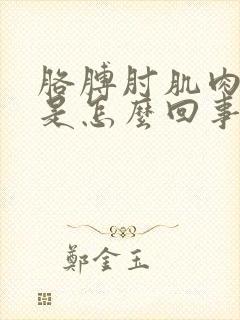 胳膊肘肌肉
是怎麽回事
鄭金玉